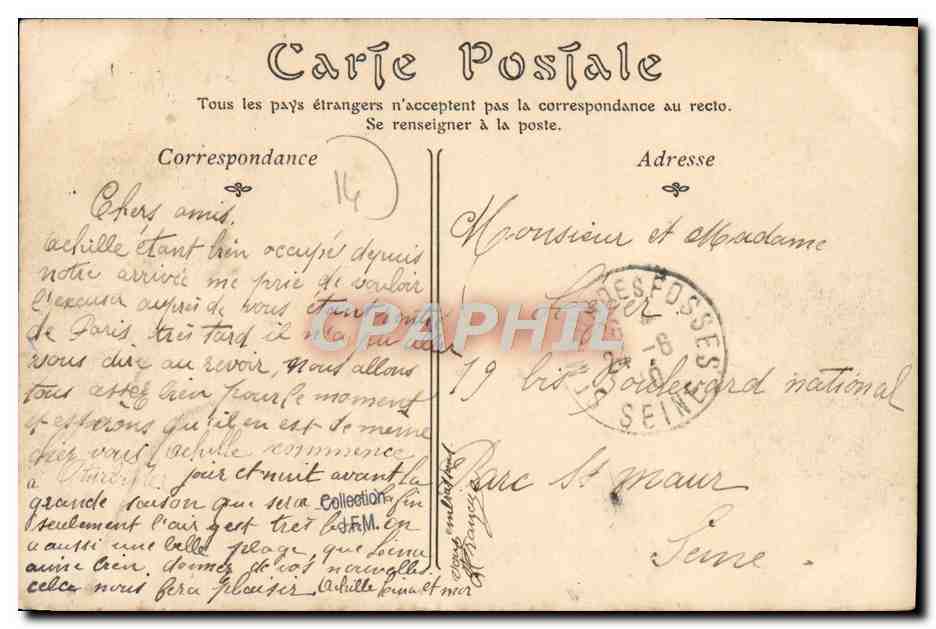 Carte Postale
Tous les pays étrangers n'acceptent pas la correspondance au recto.
Se renseigner à la poste.
Correspondance
14
Chers amis.
Achille étant bien occupé depuis
notre arrivée me prie de vouloir
l'excuser auprès de vous étant
de Paris très tard il n'a pu
vous dire au revoir, Nous allons
tous assez bien pour le moment
et espérons qu'il en est de meme
chez vous Achille commence
a jour et nuit avant la
grande saison que sera
seulement l'air y est très bon on
a aussi une belle plage, que
aime bien, donner de vos nouvelles
cela nous fera plaisir Achille et moi
vous embrassent
Adresse
Monsieur et Madame
19 bis Boulevard national
Parc St maur
Seine
DES FOSSES
SEINE
CPAPHIL
Collection
J.F.M.